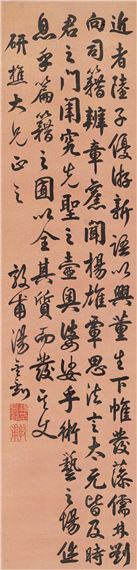 近者陸子優游新語以興董生下帷發藻儒林劉
向司籍辨章舊聞楊雄覃思法言太元皆及時
君之門闈究先聖之壼奧婆娑乎術藝之場休
息乎篇籍之囿以全其質而發其文
研樵大兄正之 敦甫湯金釗